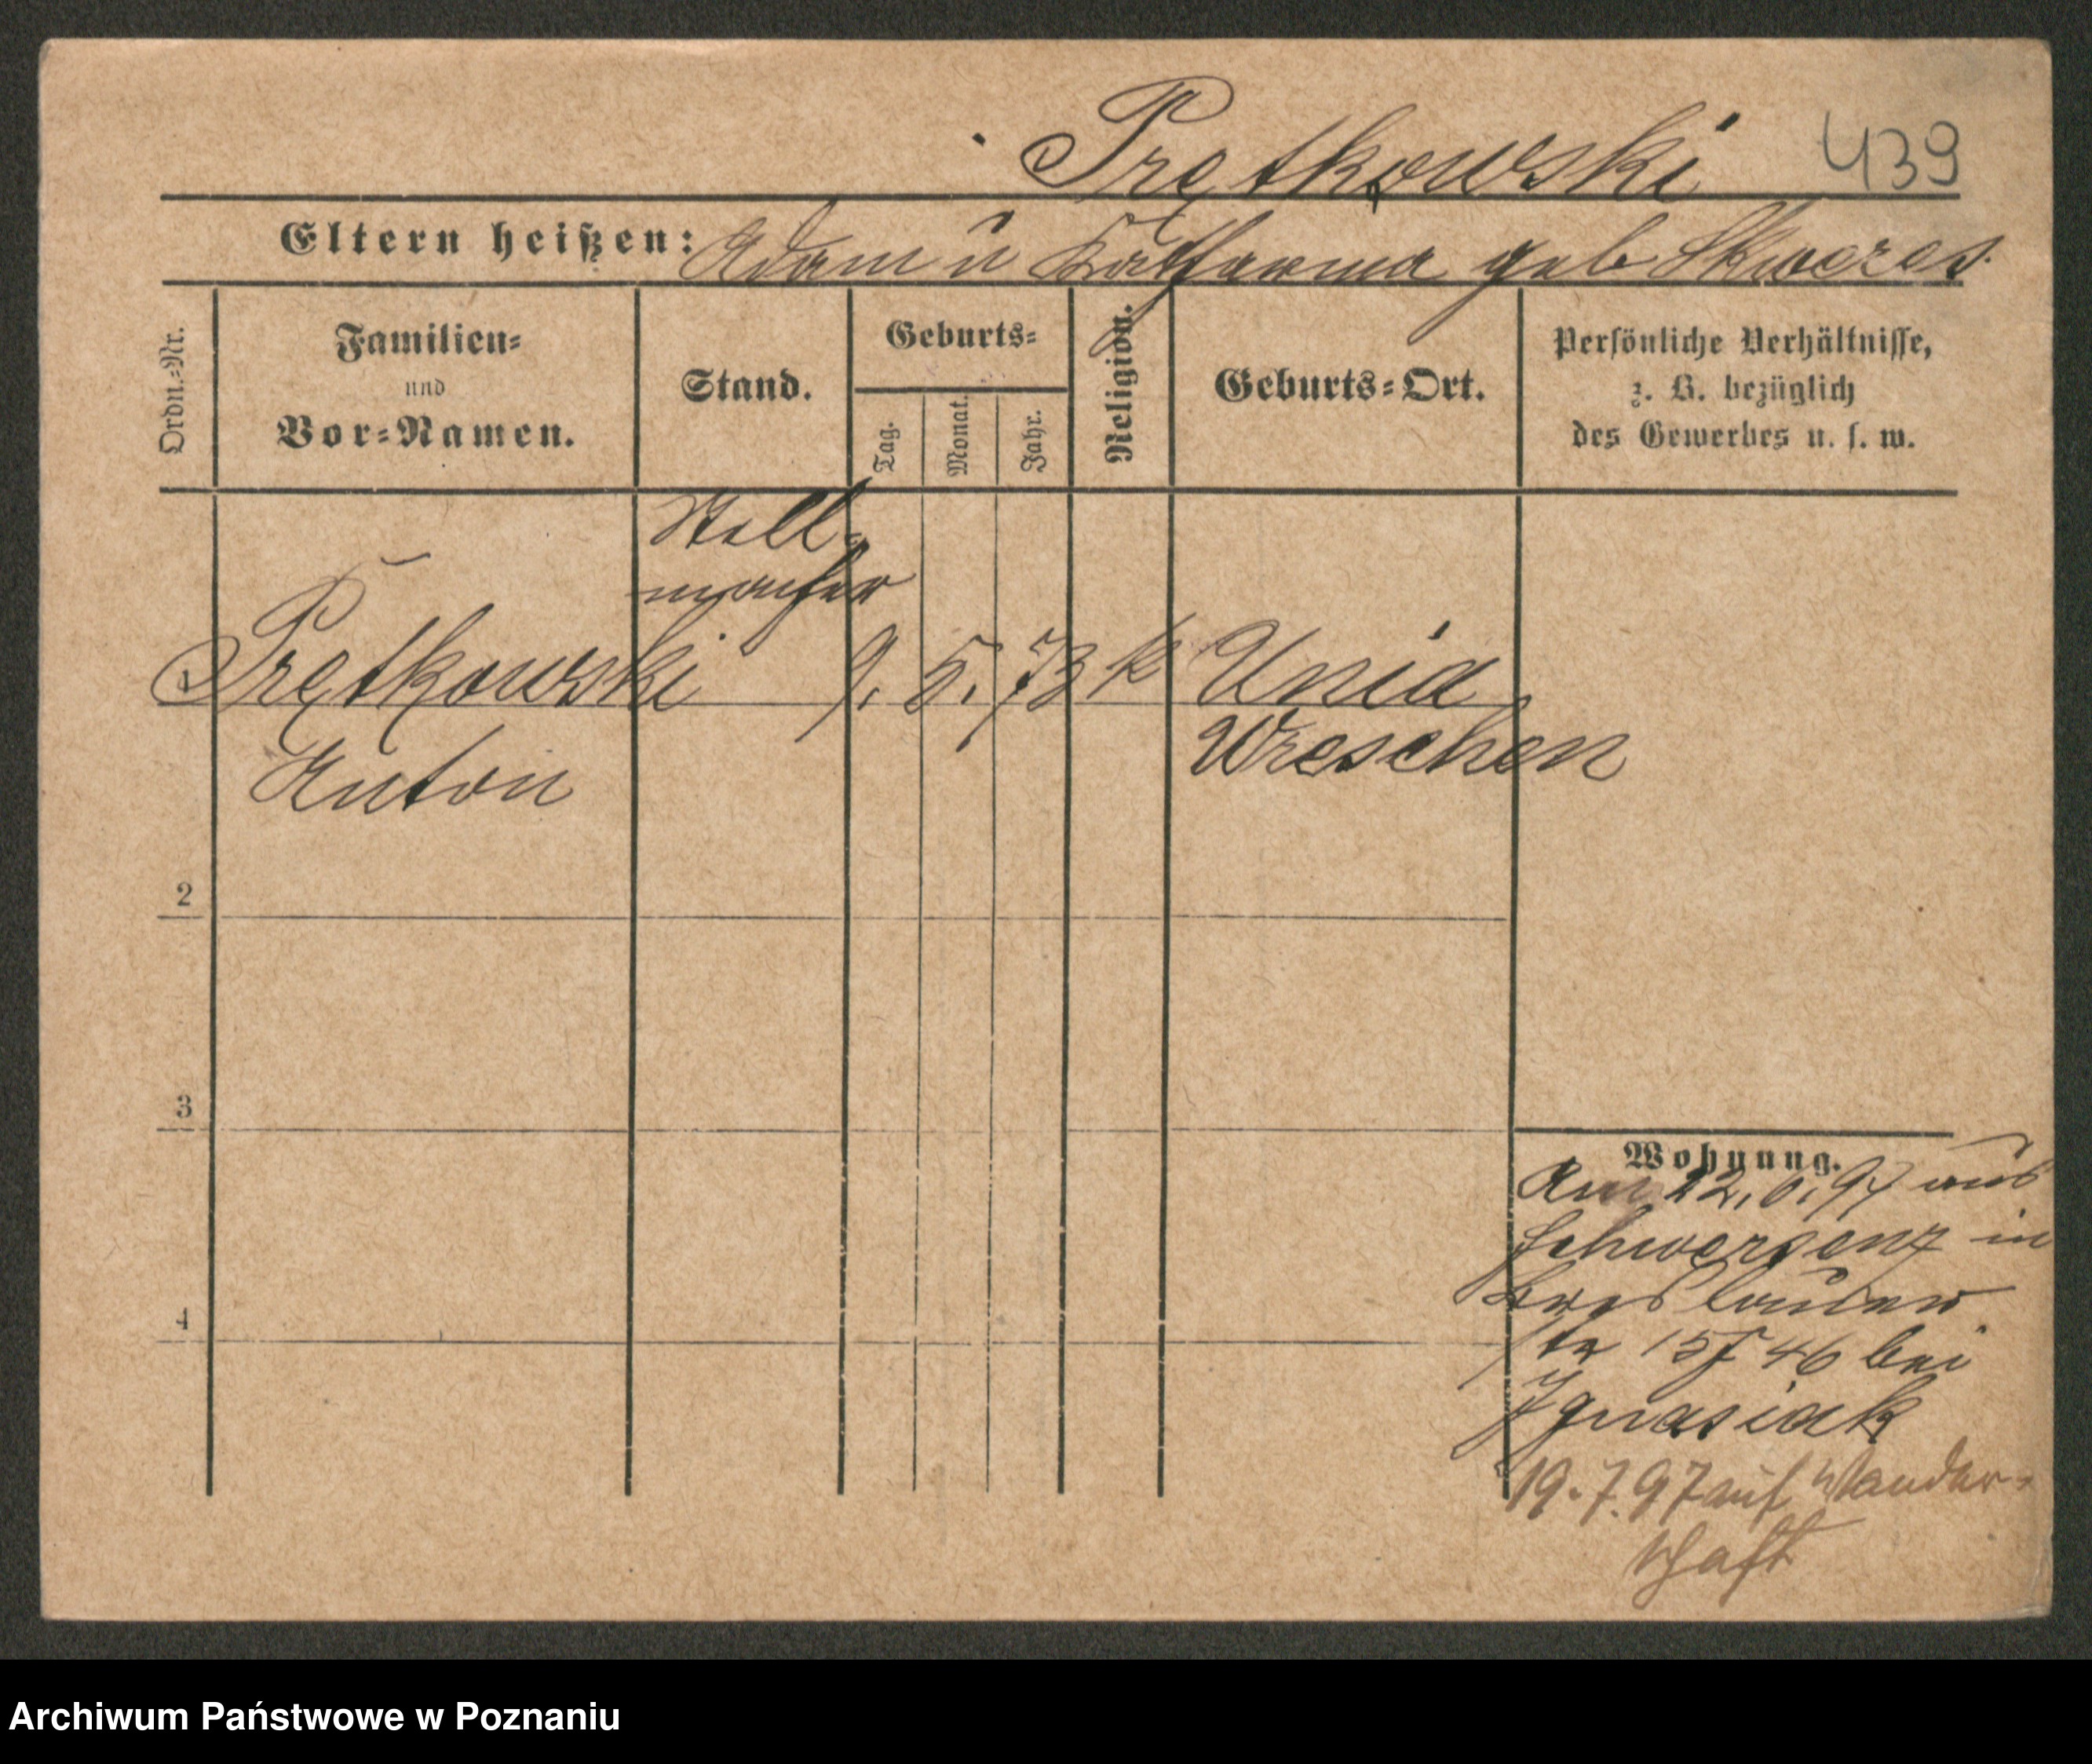 Prętkowski 439
Eltern heißen: Adam u Katharina geb Skweres.
Ordn.=Nr.
Familien=
und
Vor=Namen.
Stand.
Geburts=
Tag.
Monat.
Jahr.
Religion.
Geburts=Ort.
Persönliche Verhältnisse,
z. B. bezüglich
des Gewerbes u. s. w.
Stell=
macher
1 Prętkowski 9. 5. 73 k Unia
Anton Wreschen
2
3
4
Wohnung.
Am 22.6.97 aus
Schwersenz in
Breslauer
str 15 bei
Ignasiak
19.7.97 auf Wander=
schaft
Archiwum Państwowe w Poznaniu